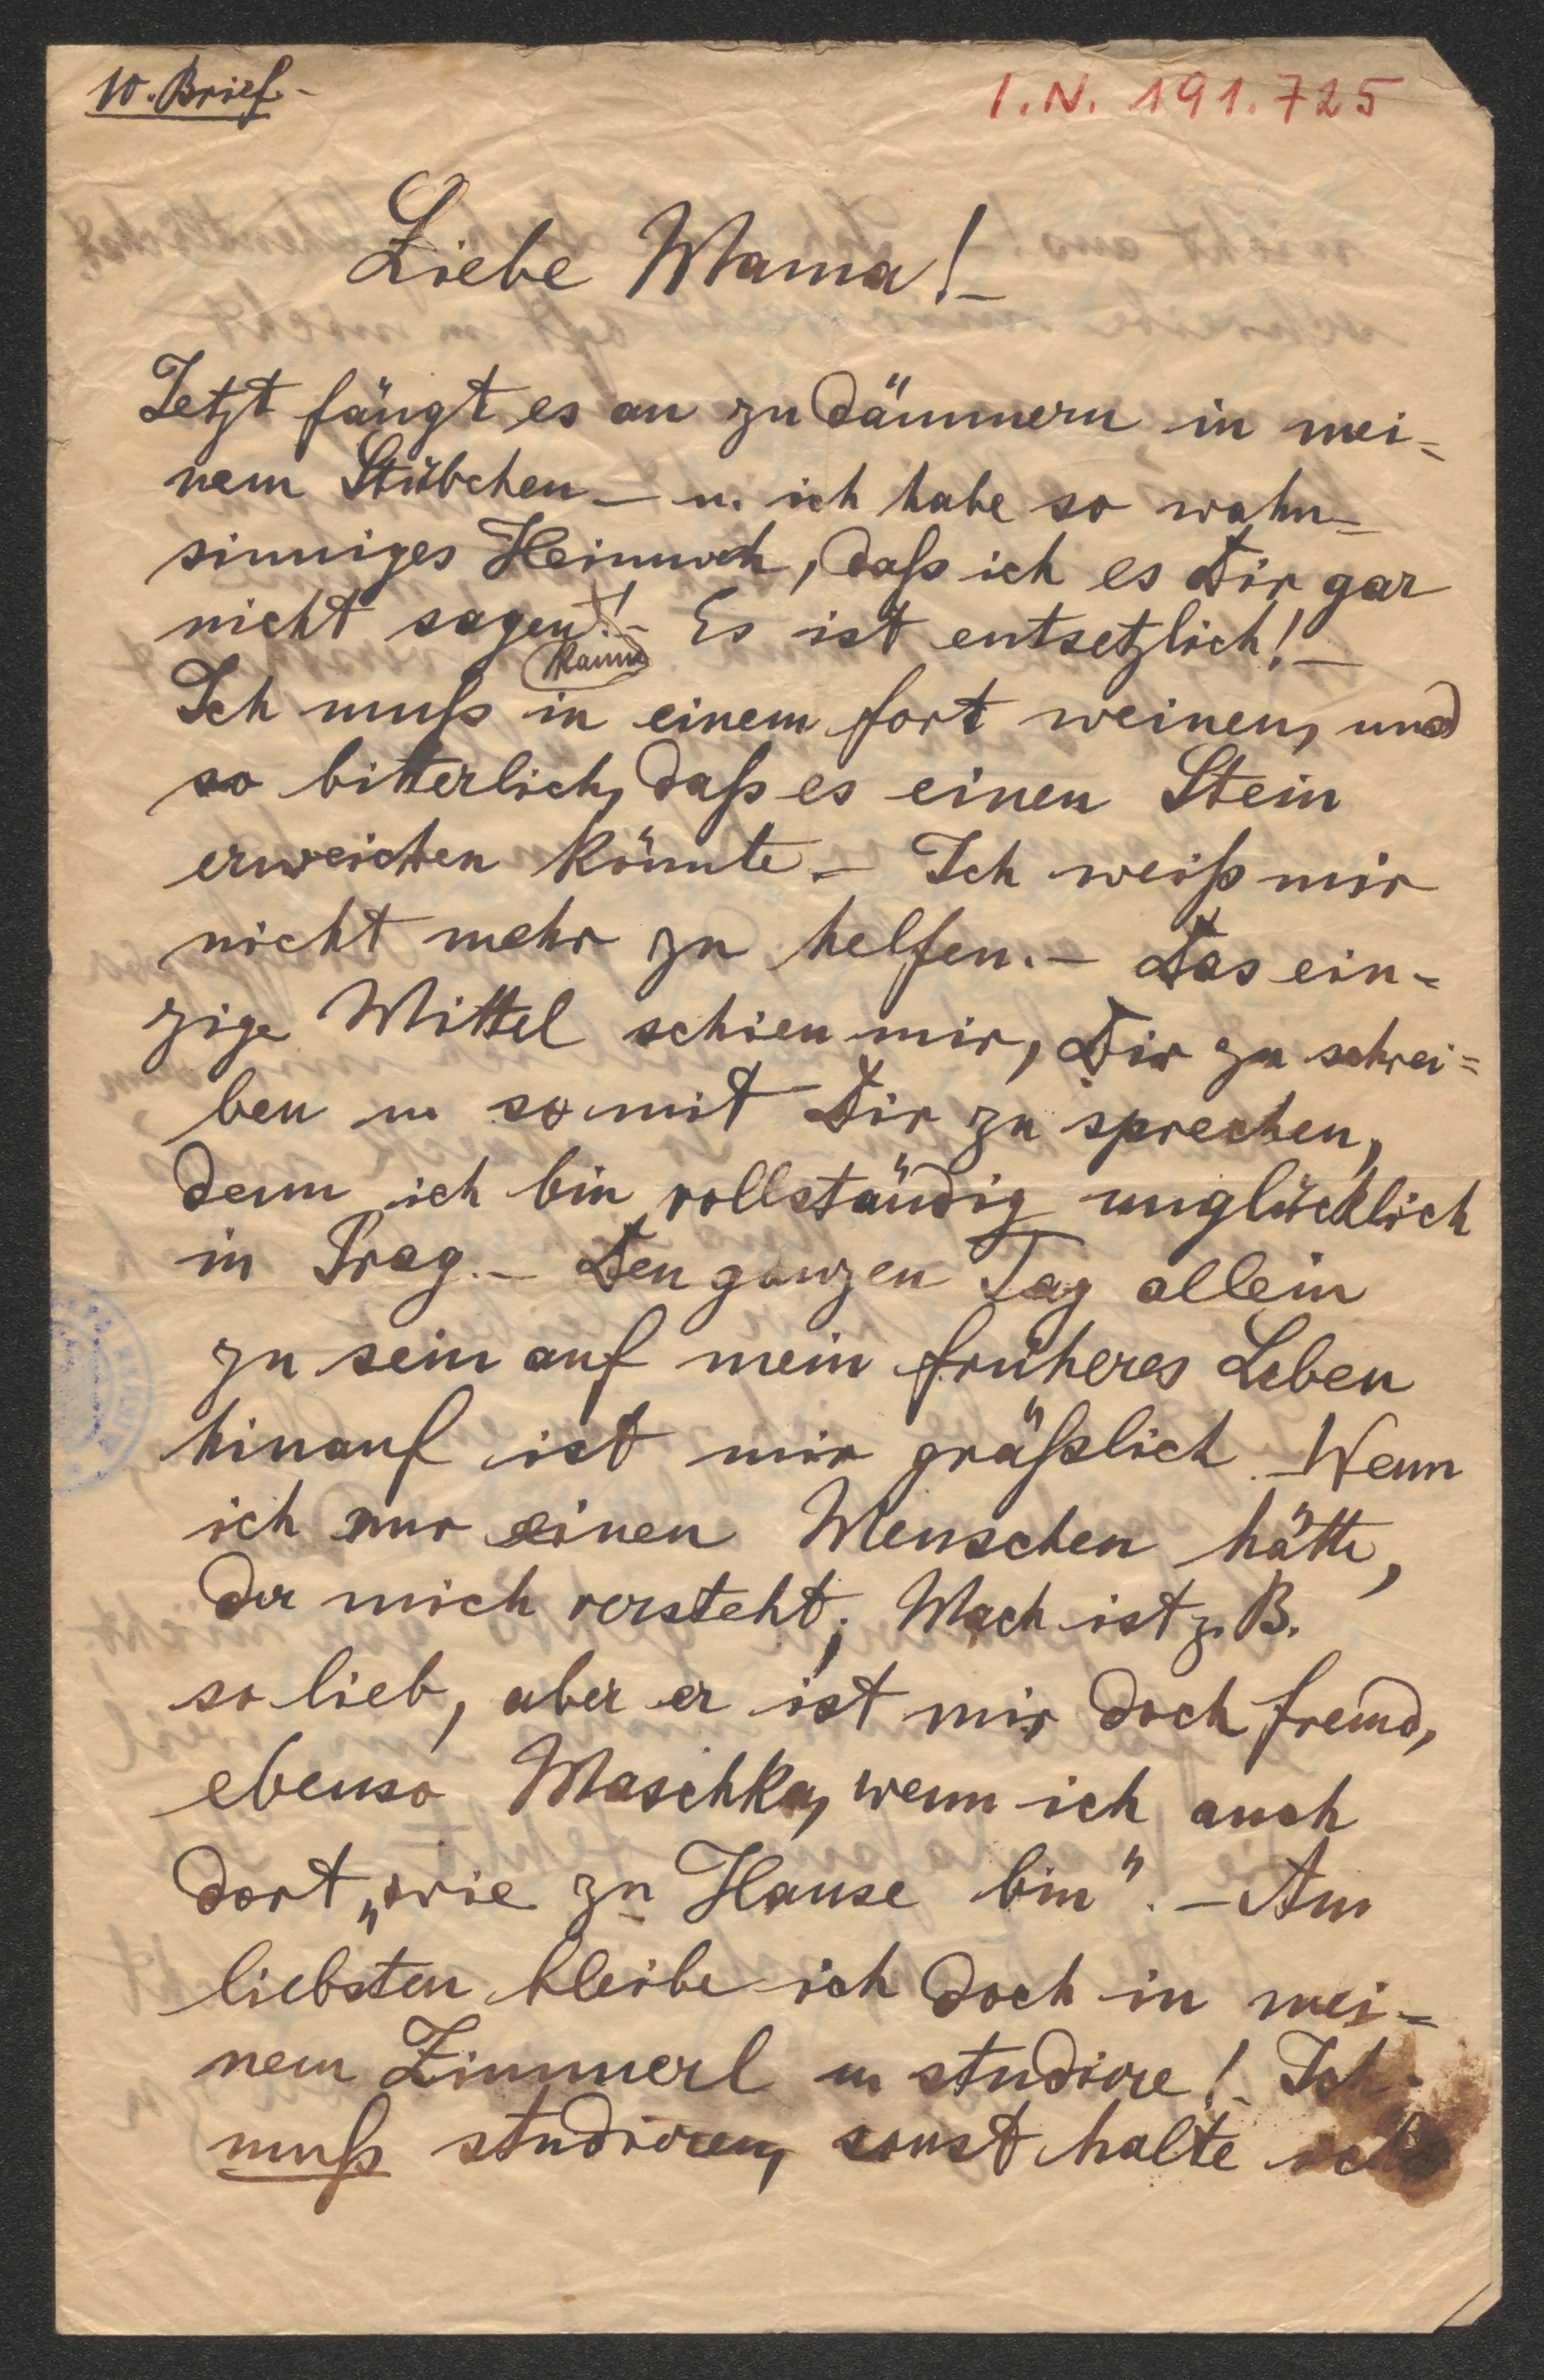 10. Brief.-
I.N. 191.725
Liebe Mama!-
Jetzt fängt es an zu dämmern in mei=
nem Stübchen - u. ich habe so wahn=
sinniges Heimweh, daß ich es Dir gar
nicht sagen!- Es ist entsetzlich!-
kann
Ich muß in einem fort weinen, und
so bitterlich, daß es einen Stein
erweichen könnte.- Ich weiß mir
nicht mehr zu helfen.- Das ein=
zige Mittel schien mir, Dir zu schrei=
ben u. somit Dir zu sprechen,
denn ich bin vollständig unglücklich
in Prag.- Den ganzen Tag allein
zu sein auf mein früheres Leben
hinauf ist mir gräßlich.- Wenn
ich nur einen Menschen hätte,
der mich versteht; Mach ist z. B.
so lieb, aber er ist mir doch fremd,
ebenso Maschka, wenn ich auch
dort „wie zu Hause bin".- Am
liebsten bleibe ich doch in mei=
nem Zimmerl u studiere!- Ich
muß studieren, sonst halte ich